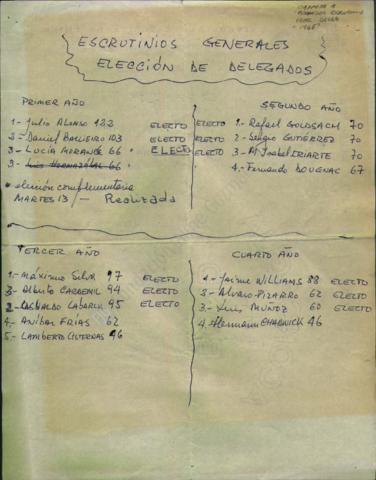 ESCRUTINIOS GENERALES
ELECCIÓN DE DELEGADOS
PRIMER AÑO
1.- Julio Alonso 122 ELECTO
2.- Daniel 103 ELECTO
3.- LUCÍA MIRANDA 66 ELECTO
3.- LUIS 66
* elección complementaria
MARTES 13/- Realizada
SEGUNDO AÑO
ELECTO 1.- Rafael GOLDSACH 70
ELECTO 2.- Sergio GUTIÉRREZ 70
ELECTO 3.- Mª Isabel IRIARTE 70
4.- Fernando DOUGNAC 67
TERCER AÑO
1.- Máximo Silva 97 ELECTO
3.- Alberto CARDEMIL 94 ELECTO
2.- OSVALDO LABARCA 95 ELECTO
4.- ANÍBAL FRÍAS 62
5.- LAMBERTO CISTERNAS 46
CUARTO AÑO
1.- Jaime WILLIAMS 88 ELECTO
2.- Alvaro PIZARRO 62 ELECTO
3.- Luis MUÑOZ 60 ELECTO
4. Hermann CHADWICK 46